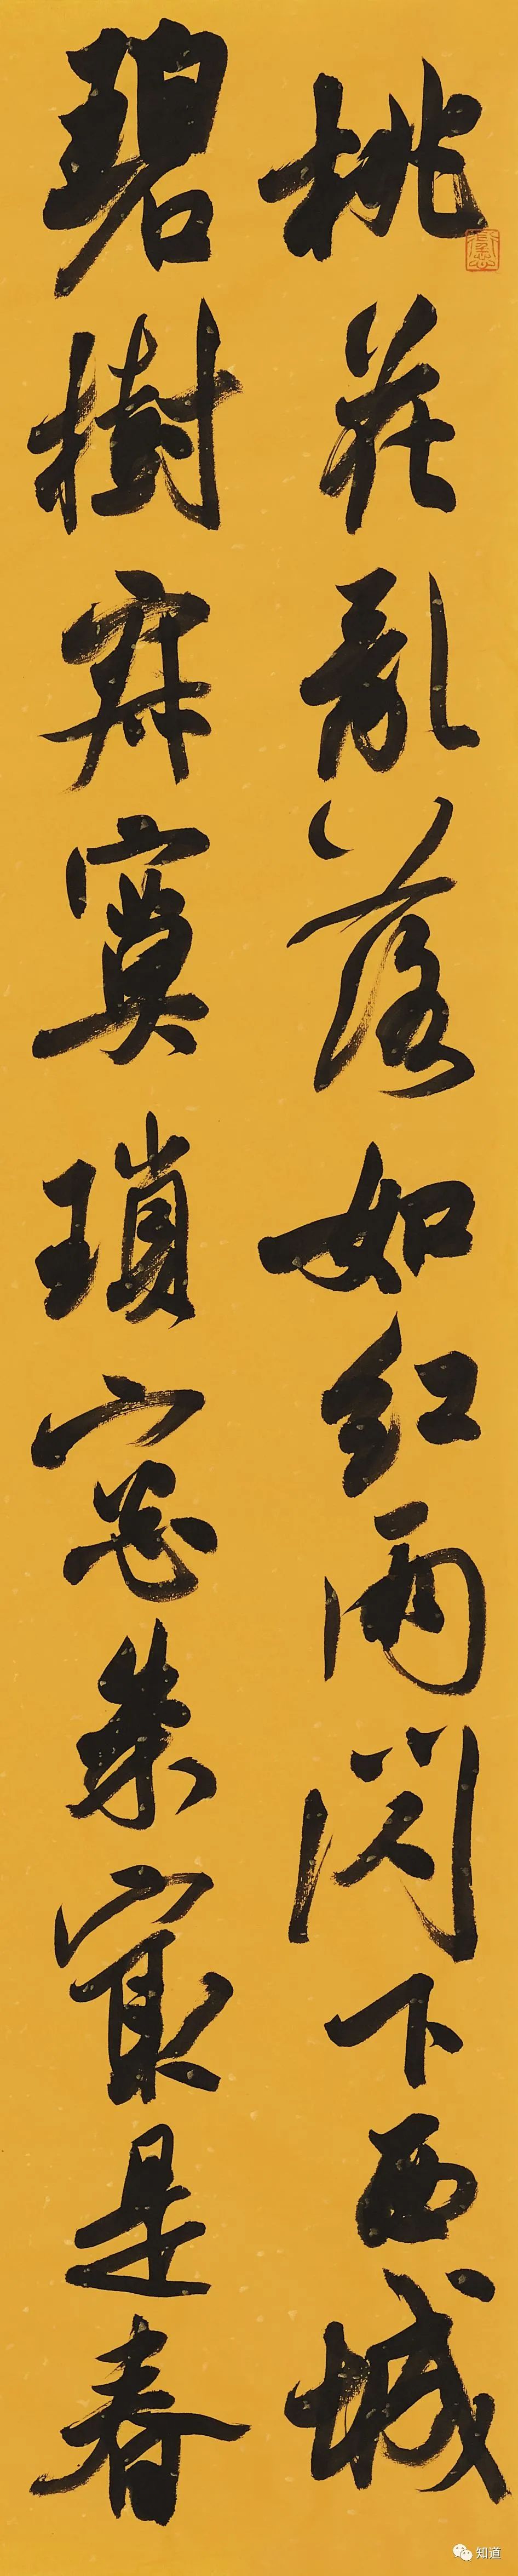 桃花亂落如紅雨閃下西城
碧樹寂寞瑣窓朱最是春
知道